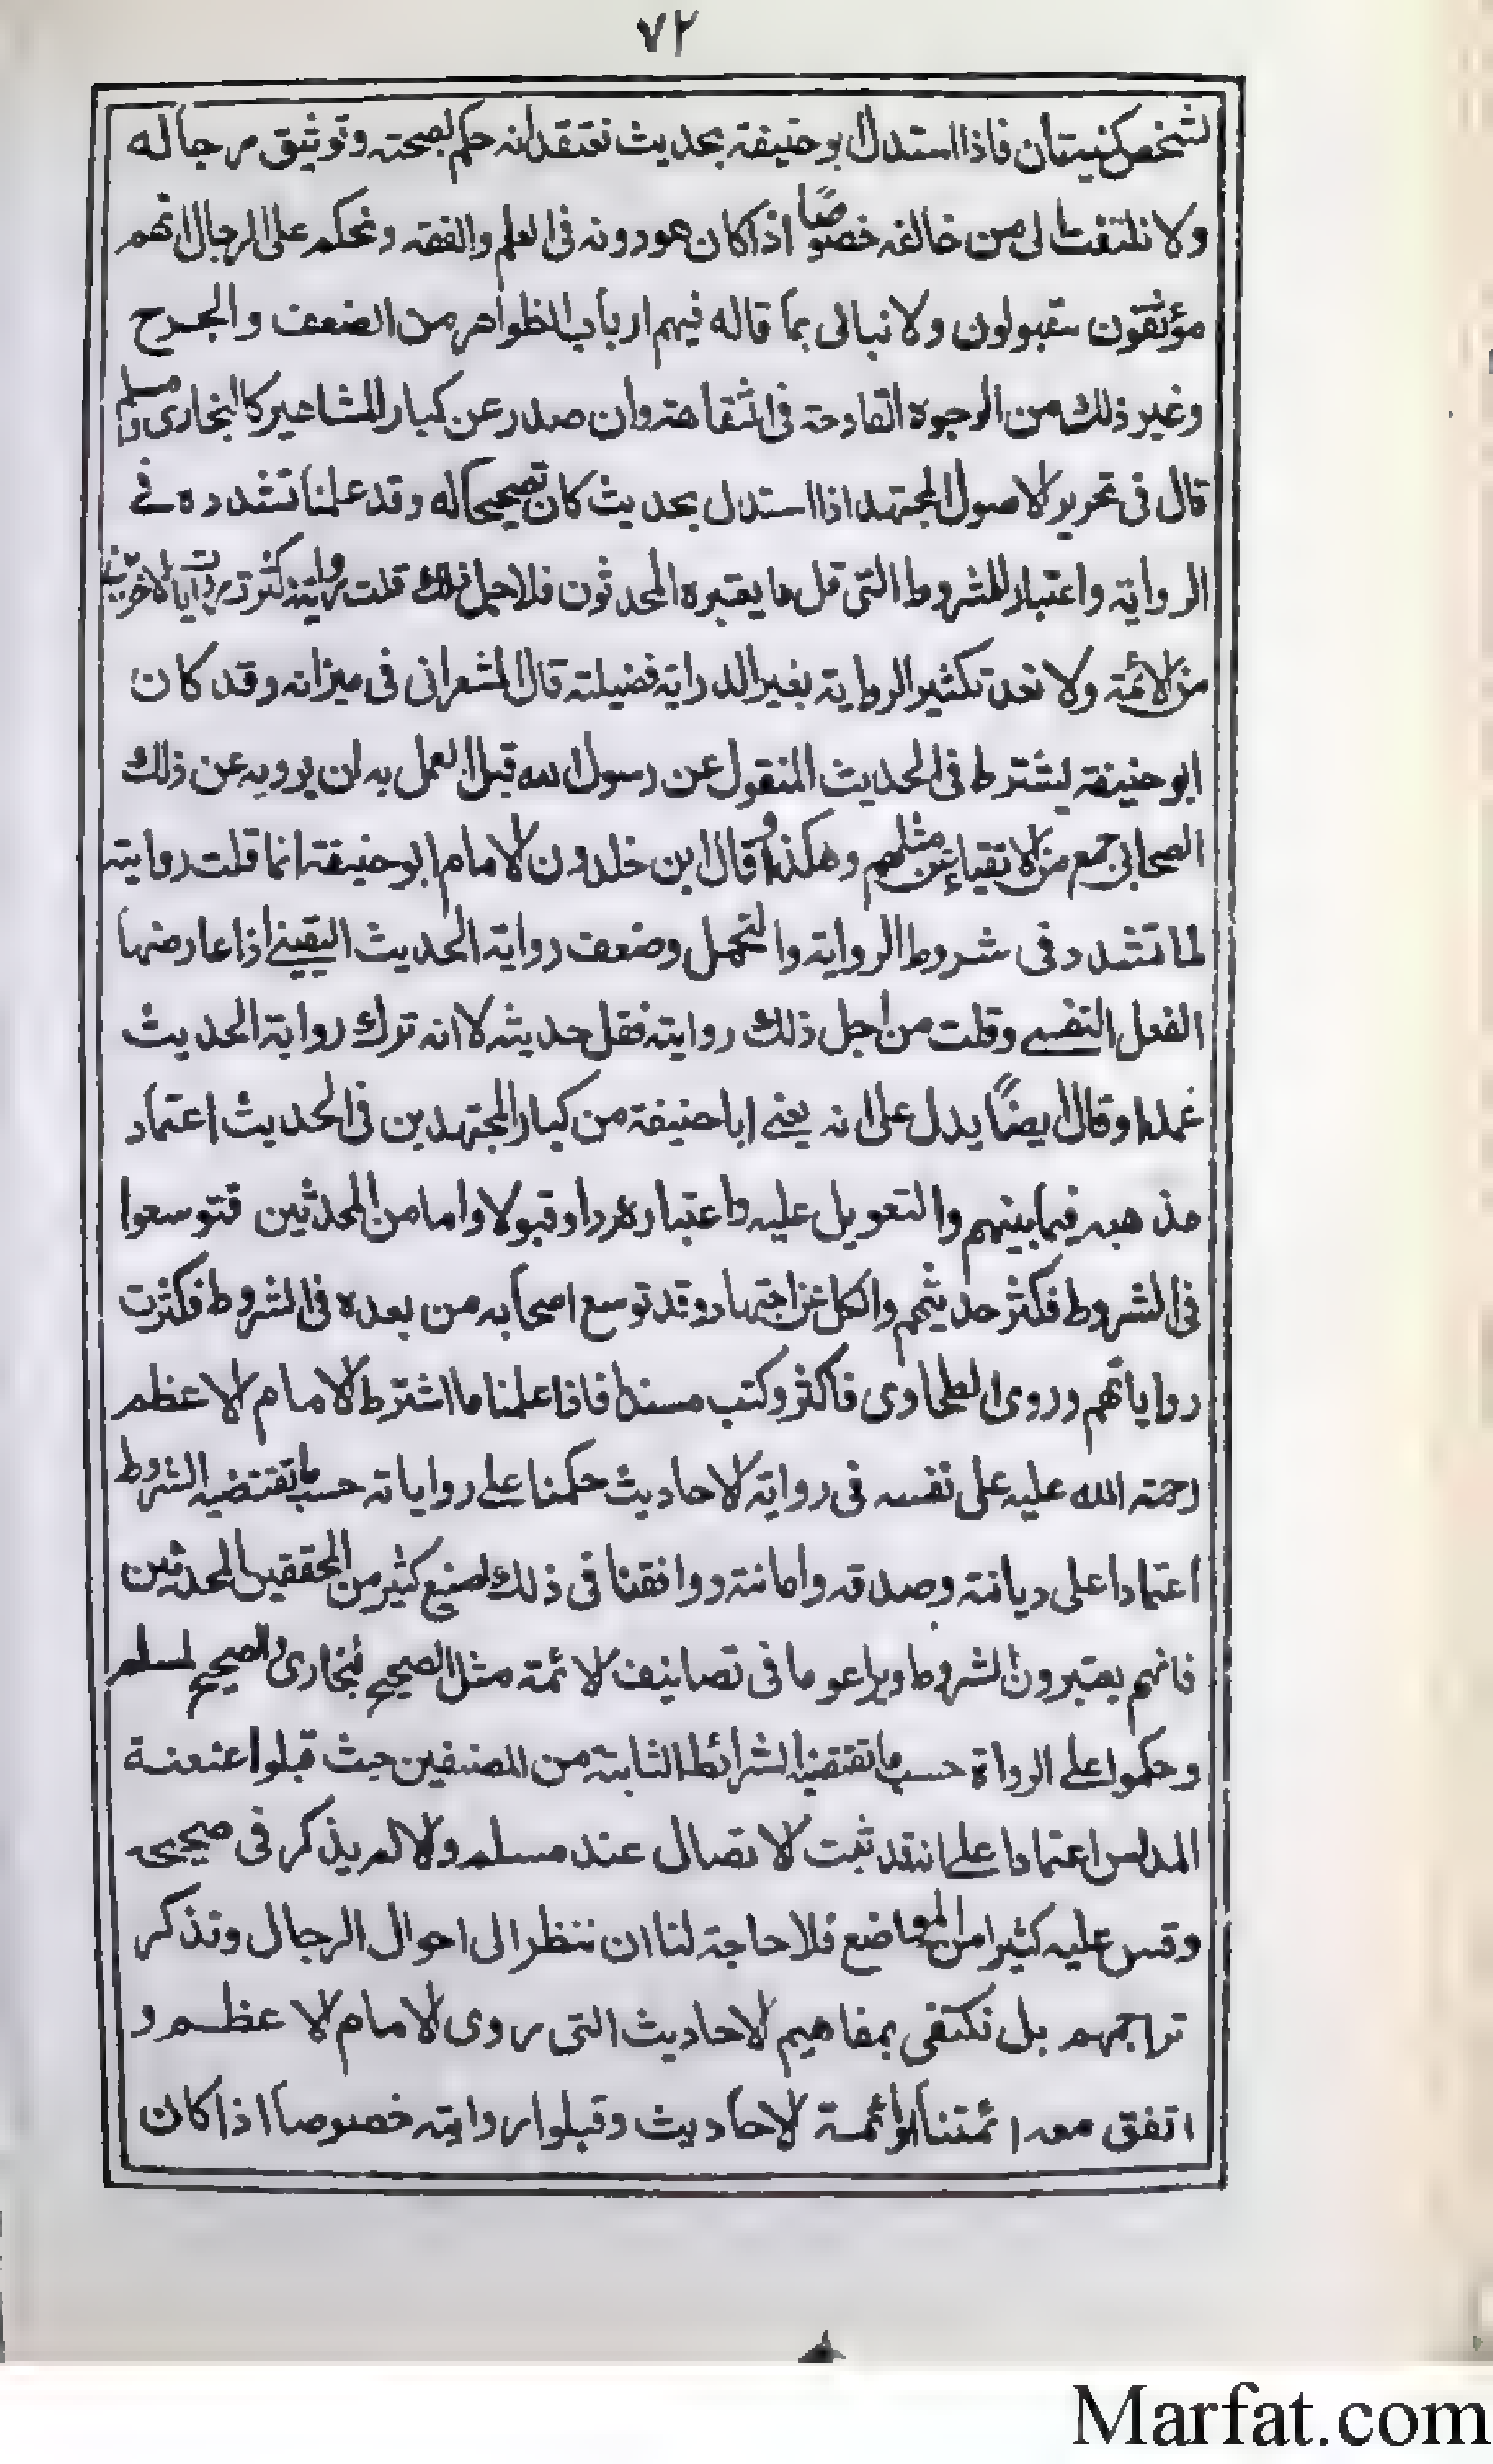 ٧٢
لشخص كنيتان فاذا استدل ابوحنيفة بحديث نعتقد انه حكم بصحته وتوثيق رجاله
ولا نلتفت الى من خالفه خصوصًا اذا كان هودونه فى العلم والفقه ونحكم على الرجال انهم
مؤثقون مقبولون ولا نبالى بما قاله فيهم ارباب الظواهر من الضعف والجرح
وغير ذلك من الوجوه القادحة فى الثقاهة وان صدر عن كبار المشاهير كالبخارى ومسلم
قال فى تحرير الاصول المجتهد اذا استدل بحديث كان تصحيحا له وقد علمنا تشدده فى
الرواية واعتبار الشروط التى قل ما يعتبره المحدثون فلاجل ذلك قلت روايته وكثرت روايات الاخرين
من الائمة ولا نعد تكثير الرواية بغير الدراية فضيلة قال الشعرانى فى ميزانه وقد كان
ابوحنيفة يشترط فى الحديث المنقول عن رسول الله قبل العمل به ان يرويه عن ذلك
الصحابى جمع من الاتقياء عن مثلهم وهكذا وقال ابن خلدون الامام ابوحنيفة انما قلت روايته
لما تشدد فى شروط الرواية والتحمل وضعف رواية الحديث اليقينى اذا عارضها
الفعل النفسى وقلت من اجل ذلك روايته فقل حديثه لا انه ترك رواية الحديث
عمدا وقال ايضًا يدل على انه يعنى اباحنيفة من كبار المجتهدين فى الحديث اعتماد
مذهبه فيما بينهم والتعويل عليه واعتباره ردا وقبولا واما من المحدثين فتوسعوا
فى الشروط فكثر حديثهم والكل عن اجتهاد وقد توسع اصحابه من بعده فى الشروط فكثرت
رواياتهم وروى الطحاوى فاكثر وكتب مسندا فاذا علمنا ما اشترط الامام الاعظم
رحمة الله عليه على نفسه فى رواية الاحاديث حكمنا على رواياته حسب ما تقتضيه الشروط
اعتمادا على ديانته وصدقه وامانته ووافقنا فى ذلك صنيع كثير من المحققين المحدثين
فانهم يعتبرون الشروط ويراعو ما فى تصانيف الائمة مثل الصحيح لبخارى والصحيح لمسلم
وحكموا على الرواة حسب ما تقتضيه الشرائط الثابتة من المصنفين حيث قبلوا عنعنة
المدلس اعتمادا على انه قد ثبت الاتصال عند مسلم والا لم يذكر فى صحيحه
وقس عليه كثيرا من المواضع فلا حاجة لنا ان ننظر الى احوال الرجال ونذكر
تراجمهم بل نكتفى بمفاهيم الاحاديث التى روى الامام الاعظم و
اتفق معه ائمتنا ائمة الاحاديث وقبلوا روايته خصوصا اذا كان
Marfat.com